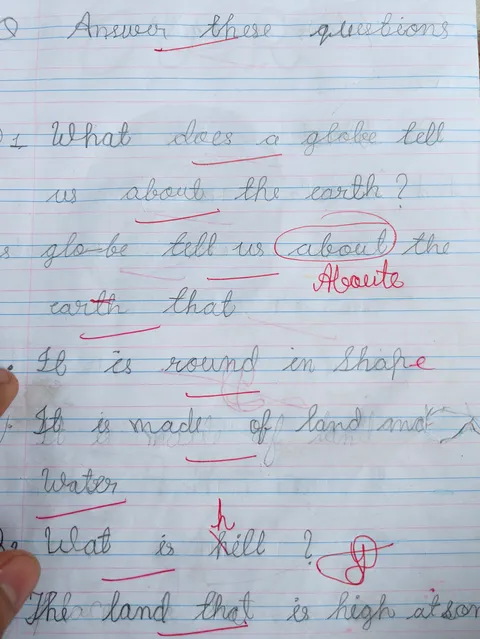 Q Answer these questions
Q1 What does a globe tell
us about the earth?
s globe tell us about the
Aboute
earth that
It is round in shape
It is made of land and
Water
h
Wat is kill ?
The land that is high atsom